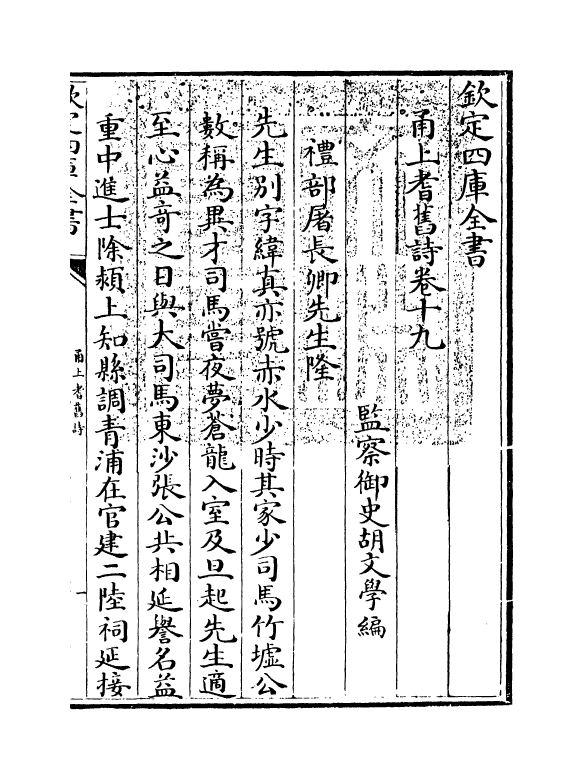 欽定四庫全書
甬上耆舊詩卷十九
監察御史胡文學編
禮部屠長卿先生隆
先生別字緯真亦號赤水少時其家少司馬竹墟公
數稱為異才司馬嘗夜夢蒼龍入室及旦起先生適
至心益奇之日與大司馬東沙張公共相延譽名益
重中進士除潁上知縣調青浦在官建二陸祠延接
欽定四庫全書
甬上耆舊詩
一